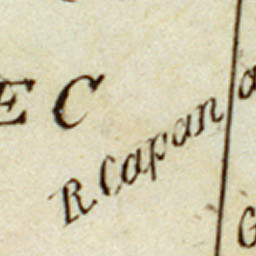 EC
R. Capana
G